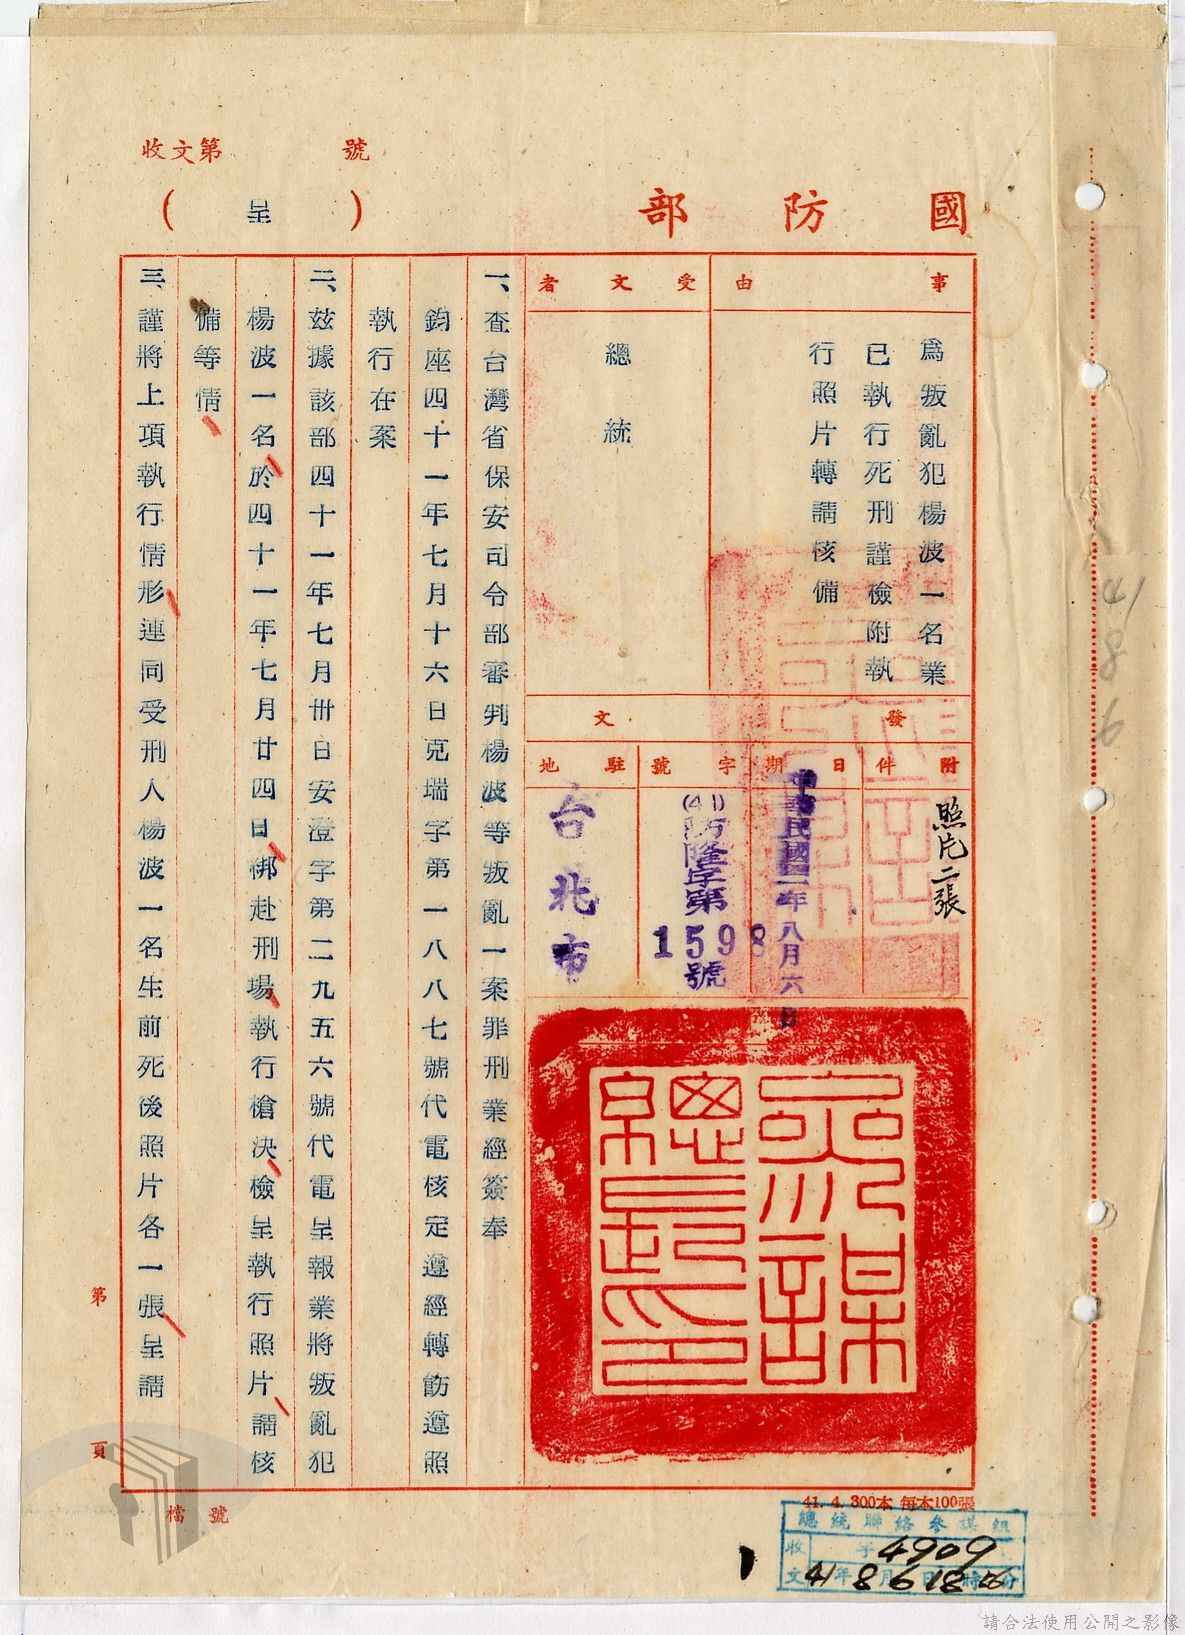 國防部
(呈)
收文第　　號
事由
為叛亂犯楊波一名業
已執行死刑謹檢附執
行照片轉請核備
受文者
總統
發文
附件
照片二張
日期
中華民國四十一年八月六日
字號
(41)防隆字第1598號
駐地
台北市
參謀總長之印
一、查台灣省保安司令部審判楊波等叛亂一案罪刑業經簽奉
鈞座四十一年七月十六日克瑞字第一八八七號代電核定遵經轉飭遵照
執行在案
二、茲據該部四十一年七月卅日安澄字第二九五六號代電呈報業將叛亂犯
楊波一名於四十一年七月廿四日綁赴刑場執行槍決檢呈執行照片請核
備等情
三、謹將上項執行情形連同受刑人楊波一名生前死後照片各一張呈請
第　　頁
檔號
41.4.300本 每本100張
總統聯絡參謀組
收文
字4909
41年8月6日18時
41
8
6
請合法使用公開之影像